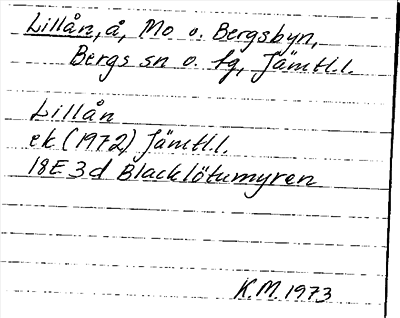 Lillån, å, Mo o. Bergsbyn,
Bergs sn o. tg, Jämtl.l.
Lillån
ek (1972) Jämtl.l.
18E 3d Blacklötumyren
K.M. 1973